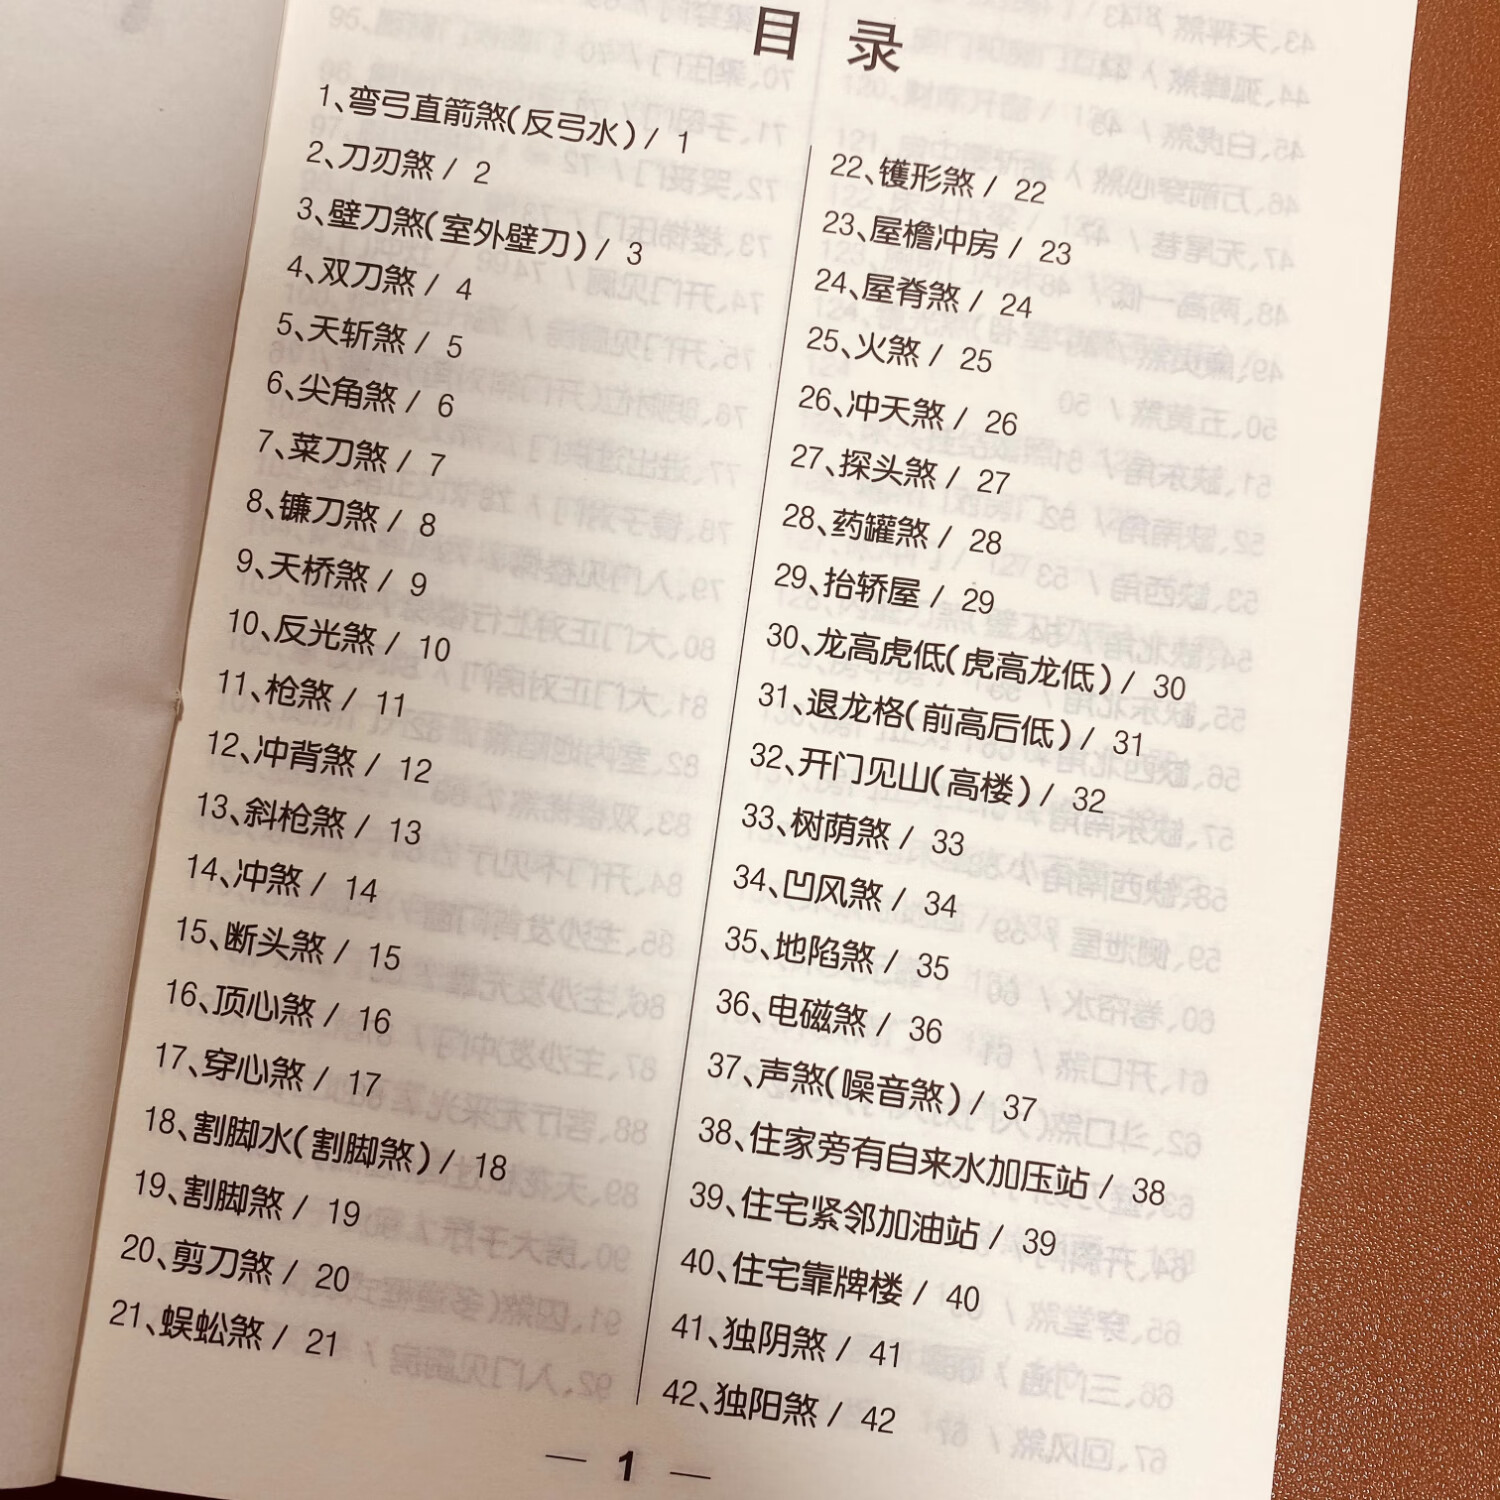 目 录
1、弯弓直箭煞(反弓水) / 1
2、刀刃煞 / 2
3、壁刀煞(室外壁刀) / 3
4、双刀煞 / 4
5、天斩煞 / 5
6、尖角煞 / 6
7、菜刀煞 / 7
8、镰刀煞 / 8
9、天桥煞 / 9
10、反光煞 / 10
11、枪煞 / 11
12、冲背煞 / 12
13、斜枪煞 / 13
14、冲煞 / 14
15、断头煞 / 15
16、顶心煞 / 16
17、穿心煞 / 17
18、割脚水(割脚煞) / 18
19、割脚煞 / 19
20、剪刀煞 / 20
21、蜈蚣煞 / 21
22、镬形煞 / 22
23、屋檐冲房 / 23
24、屋脊煞 / 24
25、火煞 / 25
26、冲天煞 / 26
27、探头煞 / 27
28、药罐煞 / 28
29、抬轿屋 / 29
30、龙高虎低(虎高龙低) / 30
31、退龙格(前高后低) / 31
32、开门见山(高楼) / 32
33、树荫煞 / 33
34、凹风煞 / 34
35、地陷煞 / 35
36、电磁煞 / 36
37、声煞(噪音煞) / 37
38、住家旁有自来水加压站 / 38
39、住宅紧邻加油站 / 39
40、住宅靠牌楼 / 40
41、独阴煞 / 41
42、独阳煞 / 42
— 1 —